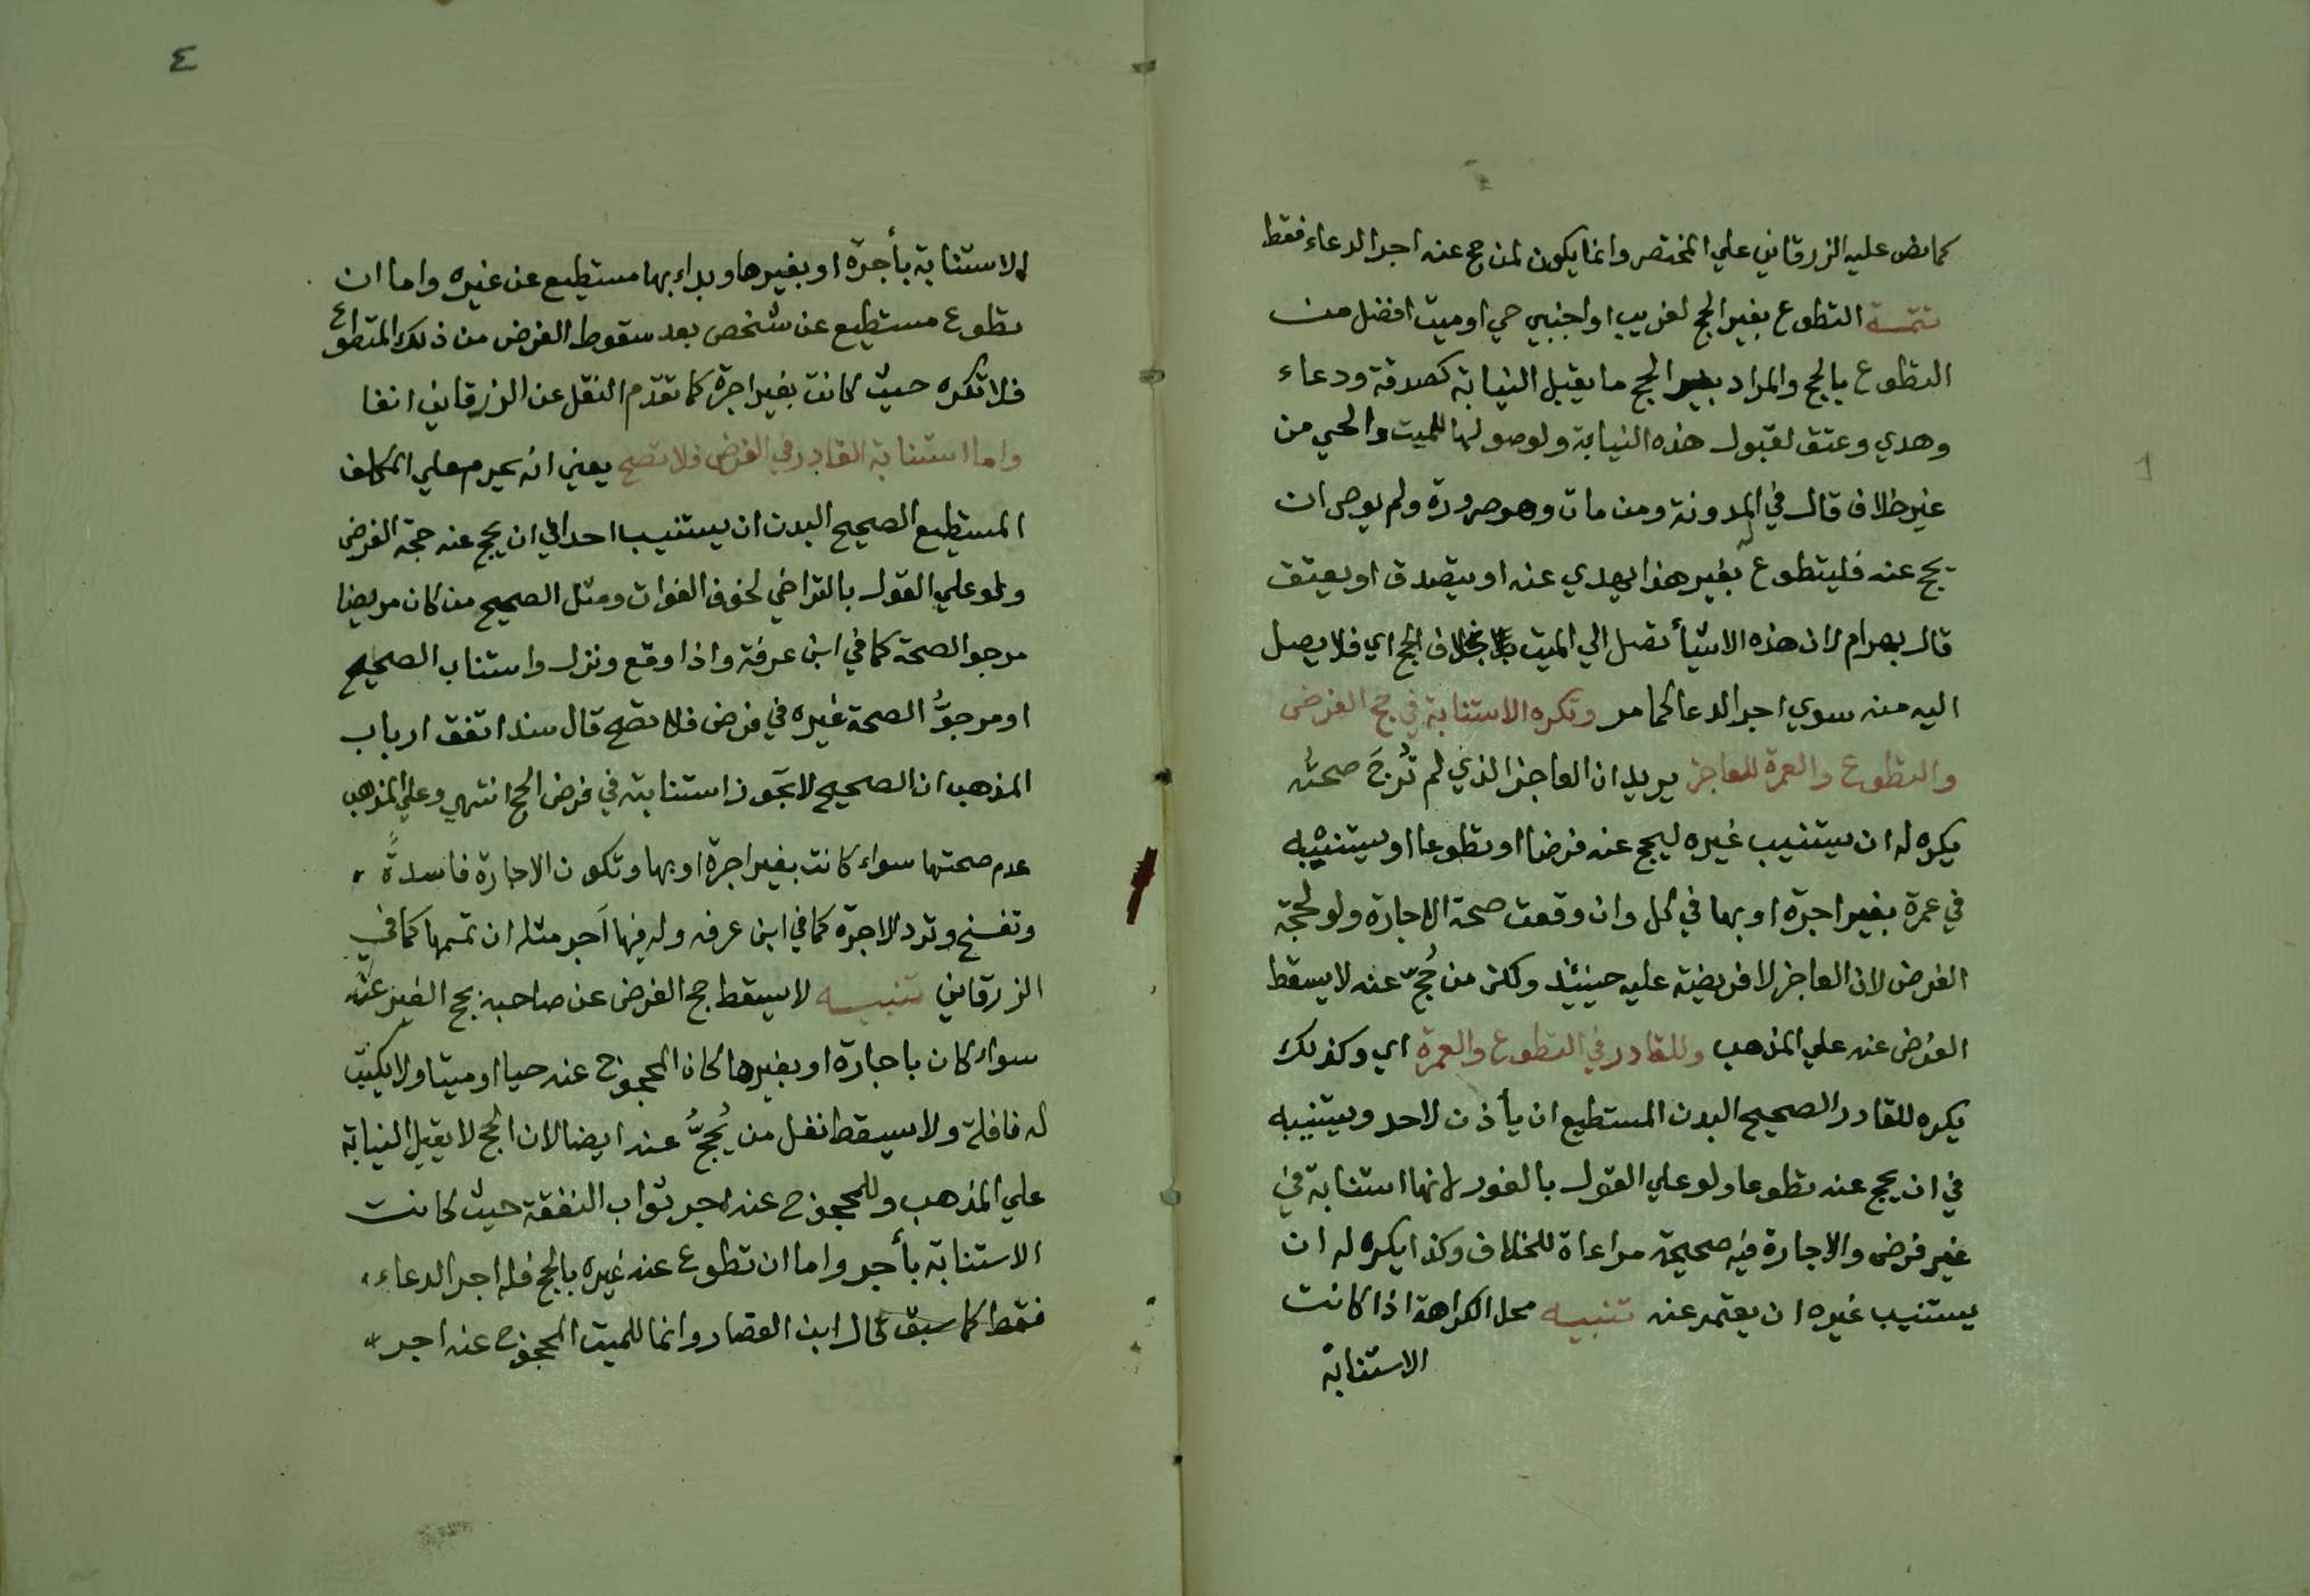 كما نص عليه الزرقاني علي المختصر وانما يكون لمن حج عنه اجر الدعاء فقط
تتمة التطوع بغير الحج لقريب او اجنبي حي او ميت افضل من
التطوع بالحج والمراد بغير الحج ما يقبل النيابة كصدقة ودعاء
وهدي وعتق لقبول هذه النيابة ولوصولها للميت والحي من
غير خلاف قال في المدونة ومن مات وهو صرورة ولم يوص ان
يحج عنه فليتطوع له بغير هذا يهدي عنه او يتصدق او يعتق
قال بهرام لان هذه الاشيأ تصل الي الميت بخلاف الحج اي فلا يصل
اليه منه سوي اجر الدعا كما مر وتكره الاستنابة في حج الفرض
والتطوع والعمرة للعاجز يريد ان العاجز الذي لم تُرجَ صحته
يكره له ان يستنيب غيره ليحج عنه فرضا او تطوعا او يستنيبه
في عمرة بغير اجرة او بها في الكل وان وقعت صحة الاجارة ولو لحجة
الفرض لان العاجز لا فريضة عليه حينئذ ولكن من حُجّ عنه لا يسقط
الفرض عنه علي المذهب وللقادر في التطوع والعمرة اي وكذلك
يكره للقادر الصحيح البدن المستطيع ان يأذن لاحد ويستنيبه
في ان يحج عنه تطوعا ولو علي القول بالفور لانها استنابة في
غير فرض والاجارة فيه صحيحة مراعاة للخلاف وكذا يكره له ان
يستنيب غيره ان يعتمر عنه تنبيه محل الكراهة اذا كانت
الاستنابة
٤
الاستنابة بأجرة او بغيرها وبداء بها مستطيع عن غيره واما ان
تطوع مستطيع عن شخص بعد سقوط الفرض من ذلك المتطوع
فلا تكره حيث كانت بغير اجرة كما تقدّم النقل عن الزرقاني انفا
واما استنابة القادر في الفرض فلا تصح يعني انه يحرم علي المكلف
المستطيع الصحيح البدن ان يستنيب احدا في ان يحج عنه حجة الفرض
ولو علي القول بالتراخي لخوف الفوات ومثل الصحيح من كان مريضا
مرجو الصحة كما في ابن عرفة واذا وقع ونزل واستناب الصحيح
او مرجوُّ الصحة غيره في فرض فلا تصح قال سند اتفق ارباب
المذهب ان الصحيح لا تجوز استنابته في فرض الحج انتهي وعلي المذهب
عدم صحتها سواء كانت بغير اجرة او بها وتكون الاجارة فاسدةً
وتفسخ وترد الاجرة كما في ابن عرفه وله فيها اجر مثله ان تممها كما في
الزرقاني تنبيه لا يسقط حج الفرض عن صاحبه بحج الغير عنه
سواء كان باجارة او بغيرها كان المحجوج عنه حيا او ميتا ولا يكتب
له نافلة ولا يسقط نفل من يُحجُّ عنه ايضا لان الحج لا يقبل النيابة
علي المذهب وللمحجوج عنه اجر ثواب النفقة حيث كانت
الاستنابة بأجر واما ان تطوع عنه غيره بالحج فله اجر الدعاء
فقط كما سبق قال ابن القصار وانما للميت المحجوج عنه اجر